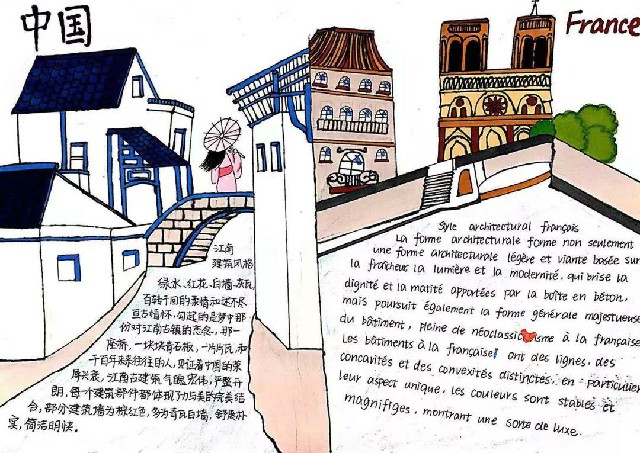 中国
France
江南
建筑风格
绿水、红花、白墙、灰瓦,
百转千回的柔情和述不尽
亘古情怀,勾起的是梦中那
份对江南古镇的态念,那一
座桥,一块块青石板,一片片瓦,和
千百年来往往的人,见证着中国的荣
辱兴衰,江南古建筑气魄宏伟,严整开
朗,每个建筑部件都体现了力与美的完美结
合,部分建筑墙为棕红色,多为青瓦白墙,舒展朴
实,简洁明快。
Style architectural français
La forme architecturale forme non seulement
une forme architecturale légère et viante basée sur
la fraîcheur la lumière et la modernité, qui brise la
dignité et la malité apportées par la boîte en béton,
mais poursuit également la forme générale majestueuse
du bâtiment, pleine de néoclassicisme à la française
Les bâtiments à la française! ont des lignes, des
concavités et des convexités distinctes, en particulier
leur aspect unique, les couleurs sont stables et
magnifiges, montrant une sorte de luxe.